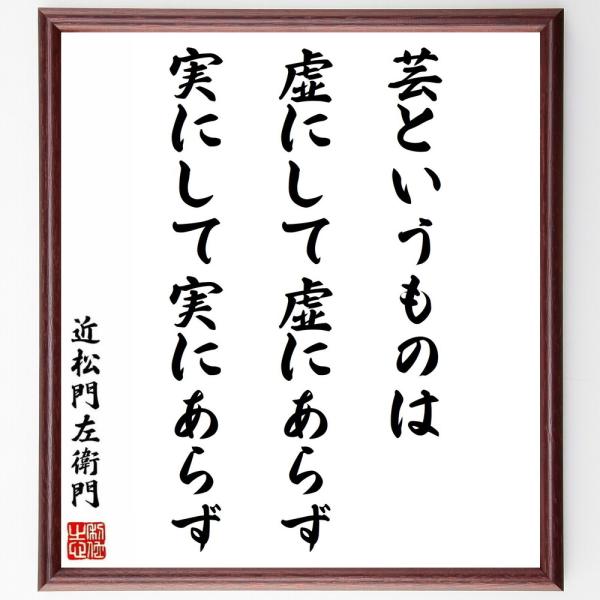 芸というものは
虚にして虚にあらず
実にして実にあらず
近松門左衛門